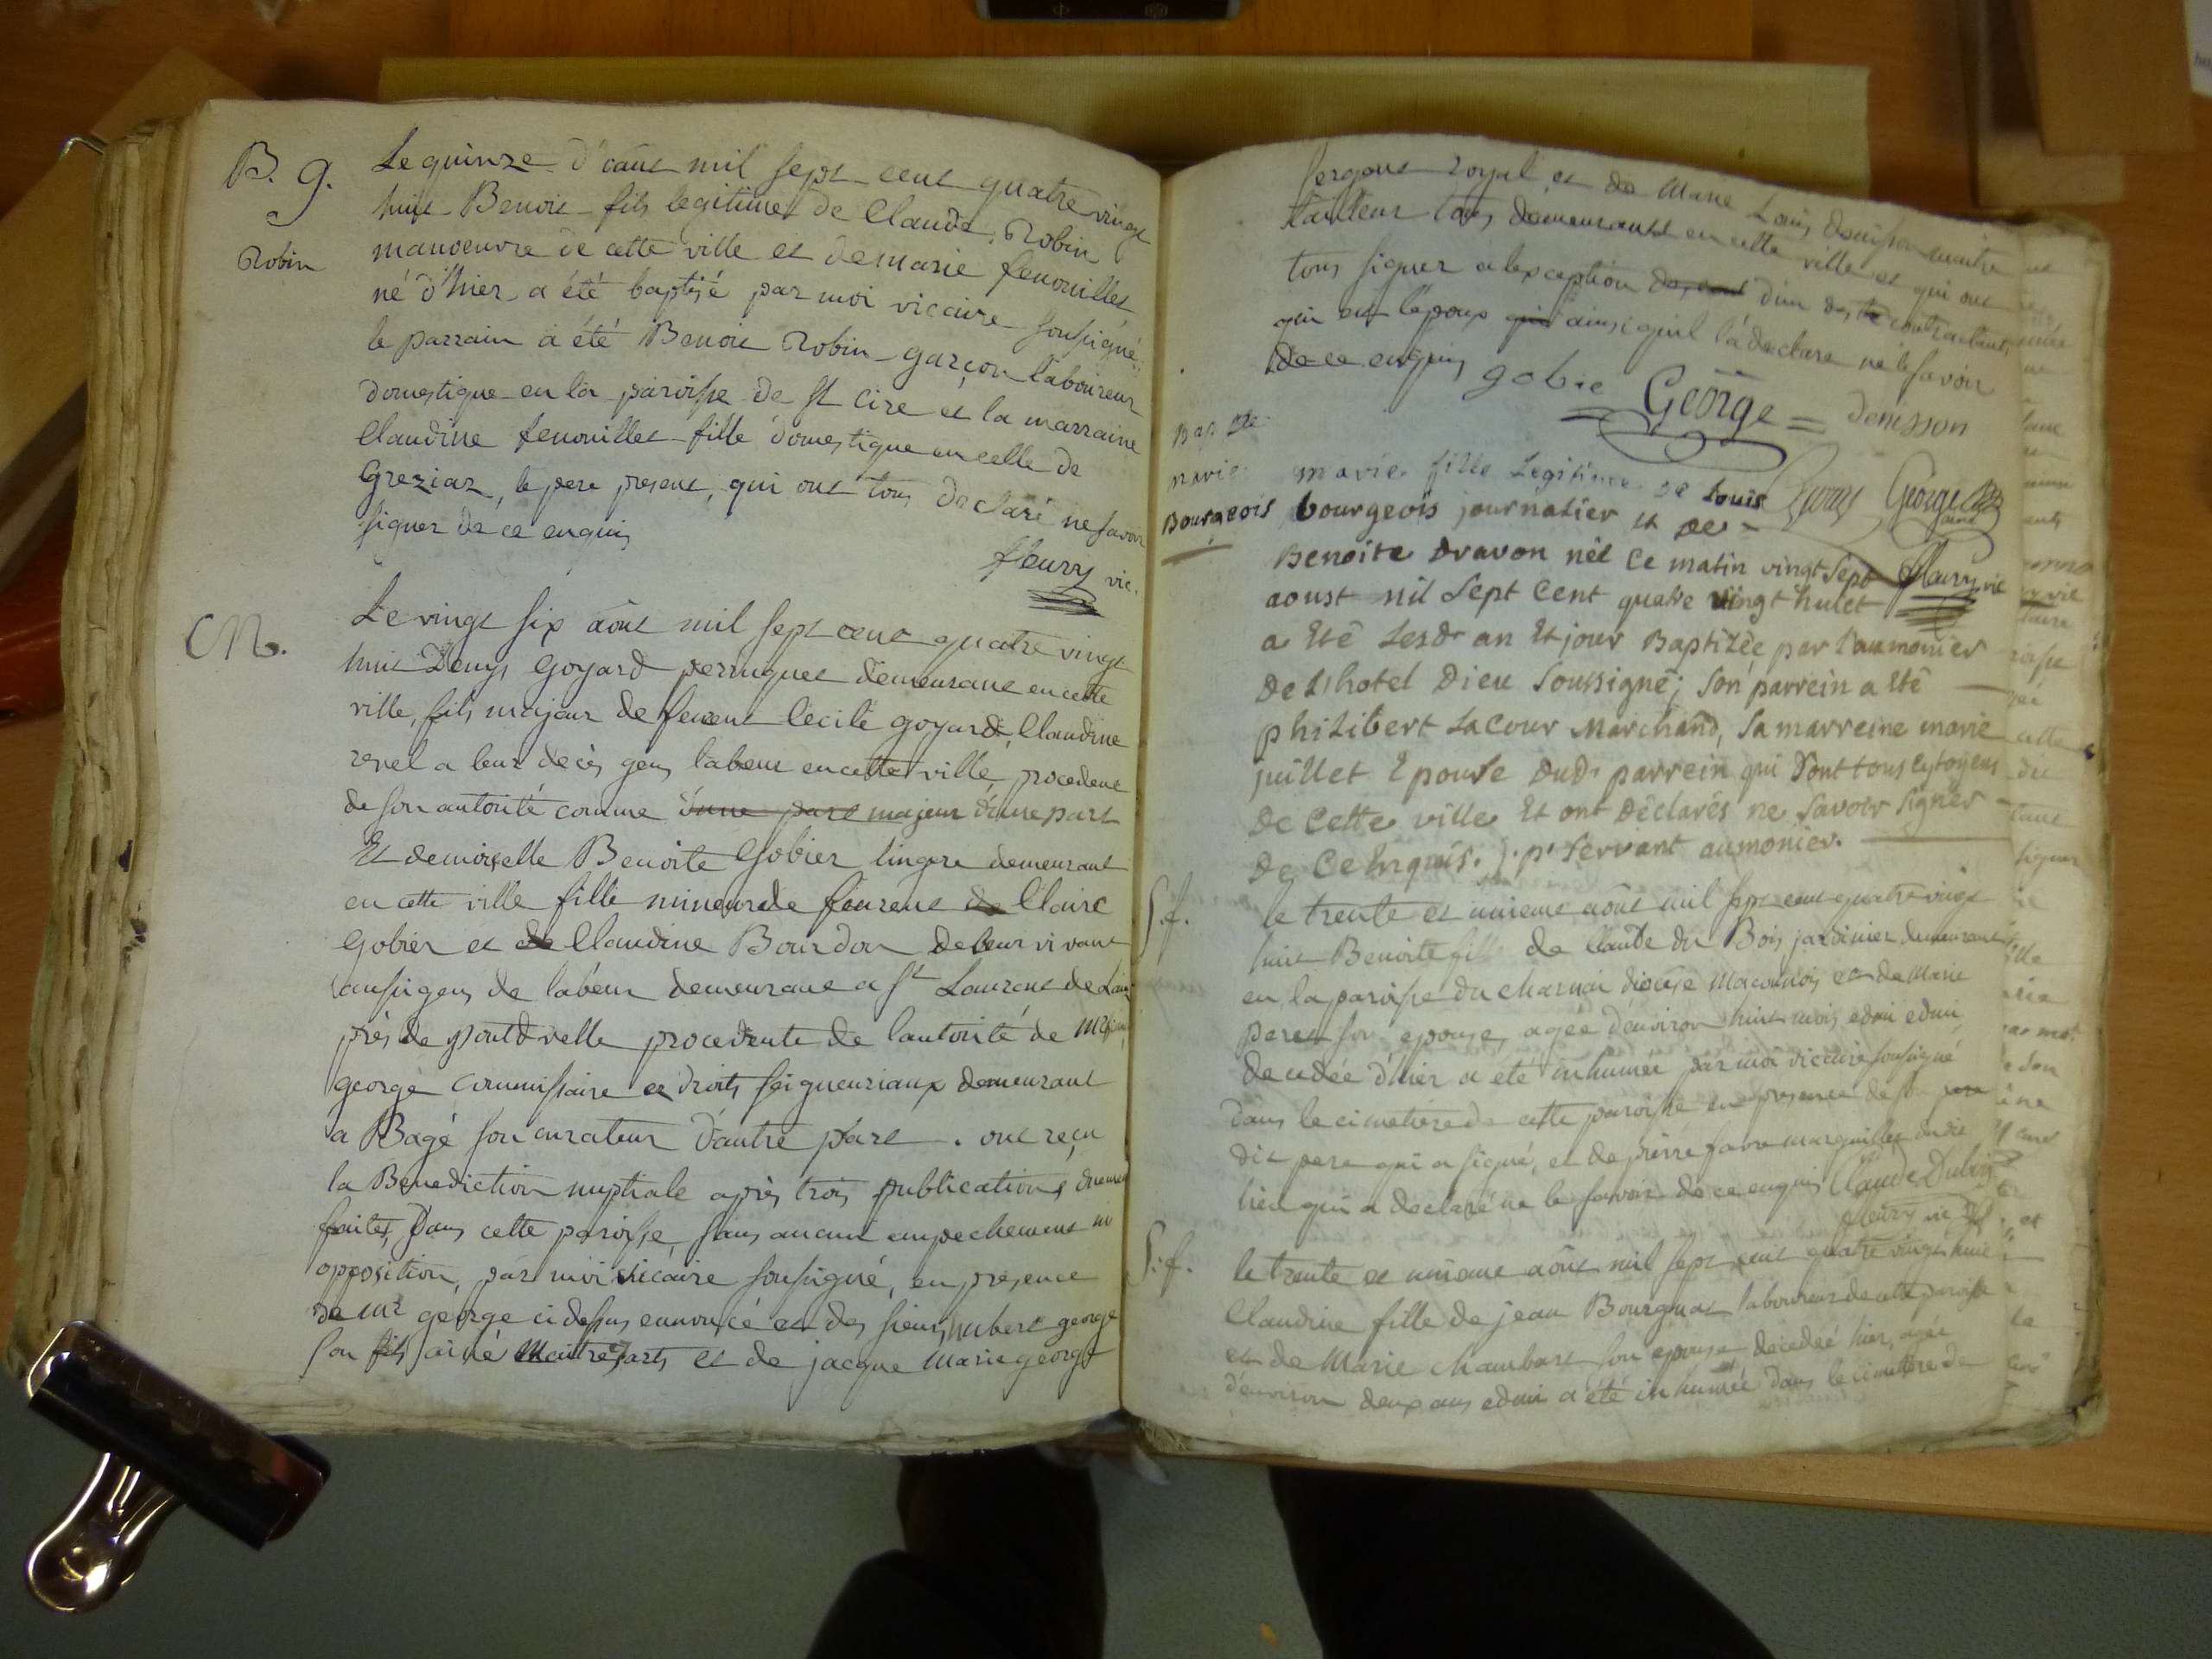 B. g.
Robin
Le quinze d'août mil sept cent quatre vingt
huit Benoit fils legitime de Claude Robin
manoeuvre de cette ville et de marie fenouillet
né d'hier a été baptisé par moi vicaire soussigné
le parrain a été Benoit Robin garçon laboureur
domestique en la paroisse de St Cire et la marraine
Claudine fenouillet fille domestique en celle de
Greziat, le pere present, qui ont tous declaré ne savoir
signer de ce enquis
fleury vic.
M.
Le vingt six août mil sept cent quatre vingt
huit Denys Goyard perruquier demeurant en cette
ville, fils majeur de feurent Cecile Goyard, Claudine
revel a leur decès gens labeur en cette ville, procedent
de son autorité comme d'une part majeur d'une part
Et demoiselle Benoite Gobier lingere demeurant
en cette ville fille mineure de feurent de Claire
Gobier et de Claudine Bourdon de leur vivant
aussi gens de labeur demeurant a St Laurent de
près de pontdvelle procedente de l'autorité de
george commissaire es droits seigneuriaux demeurant
a Bagé son curateur d'autre part. ont reçu
la Benediction nuptiale après trois publications
faites dans cette paroisse, sans aucun empechement ni
opposition, par moi vicaire soussigné, en presence
de mr george ci dessus ennoncé et des sieurs hubert george
son fils ainé Maitre es arts et de jacque Marie george
sergent royal et de Marie Louis denisson maitre
tailleur tous demeurants en cette ville et qui ont
tous signer a l'exception d'un des contractants
qui est l'epoux ainsi qu'il l'a declare ne le savoir
de ce enquis
gobie George denisson
George
fleury vic
Bap. me
marie
Bourgeois
marie fille Legitime de Louis
bourgeois journalier et de
Benoite Dravon née Ce matin vingt sept
aoust mil Sept Cent quatre vingt huict
a Eté Lesdr an Et jour Baptizée par l'aumonier
De L'hotel Dieu Soussigné; Son parrein a Eté
philibert LaCour Marchand, Sa marreine marie
juillet Epouse Dudr parrein qui Sont tous Cytoyens
De Cette ville Et ont Déclarés ne Savoir Signer
De Ce Enquis. j. pr Servant aumonier.
S.f.
le trente et unieme août mil sept cent quatre vingt
huit Benoite fille de Claude du Bois jardinier demeurant
en la paroisse du charnai diocese Maconnois et de Marie
peret son epouse, agée d'environ huit mois edmi edmi
decedée d'hier a été inhumée par moi vicaire soussigné
dans le cimetiere de cette paroisse en presence de
dit pere qui a signé, et de pierre favre marguillier dudit
lieu qui a declaré ne le savoir de ce enquis Claude Dubois
fleury vic
S.f.
le trente et unieme août mil sept cent quatre vingt huit
Claudine fille de jean Bourgnat laboureur de cette paroisse
et de Marie Chambart son epouse decedeé hier, agée
d'environ deux ans edmi a été inhumée dans le cimetiere de